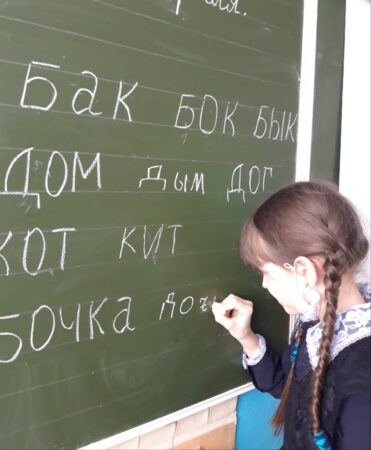 Бак бок бык
дом дым дог
кот кит
бочка доч